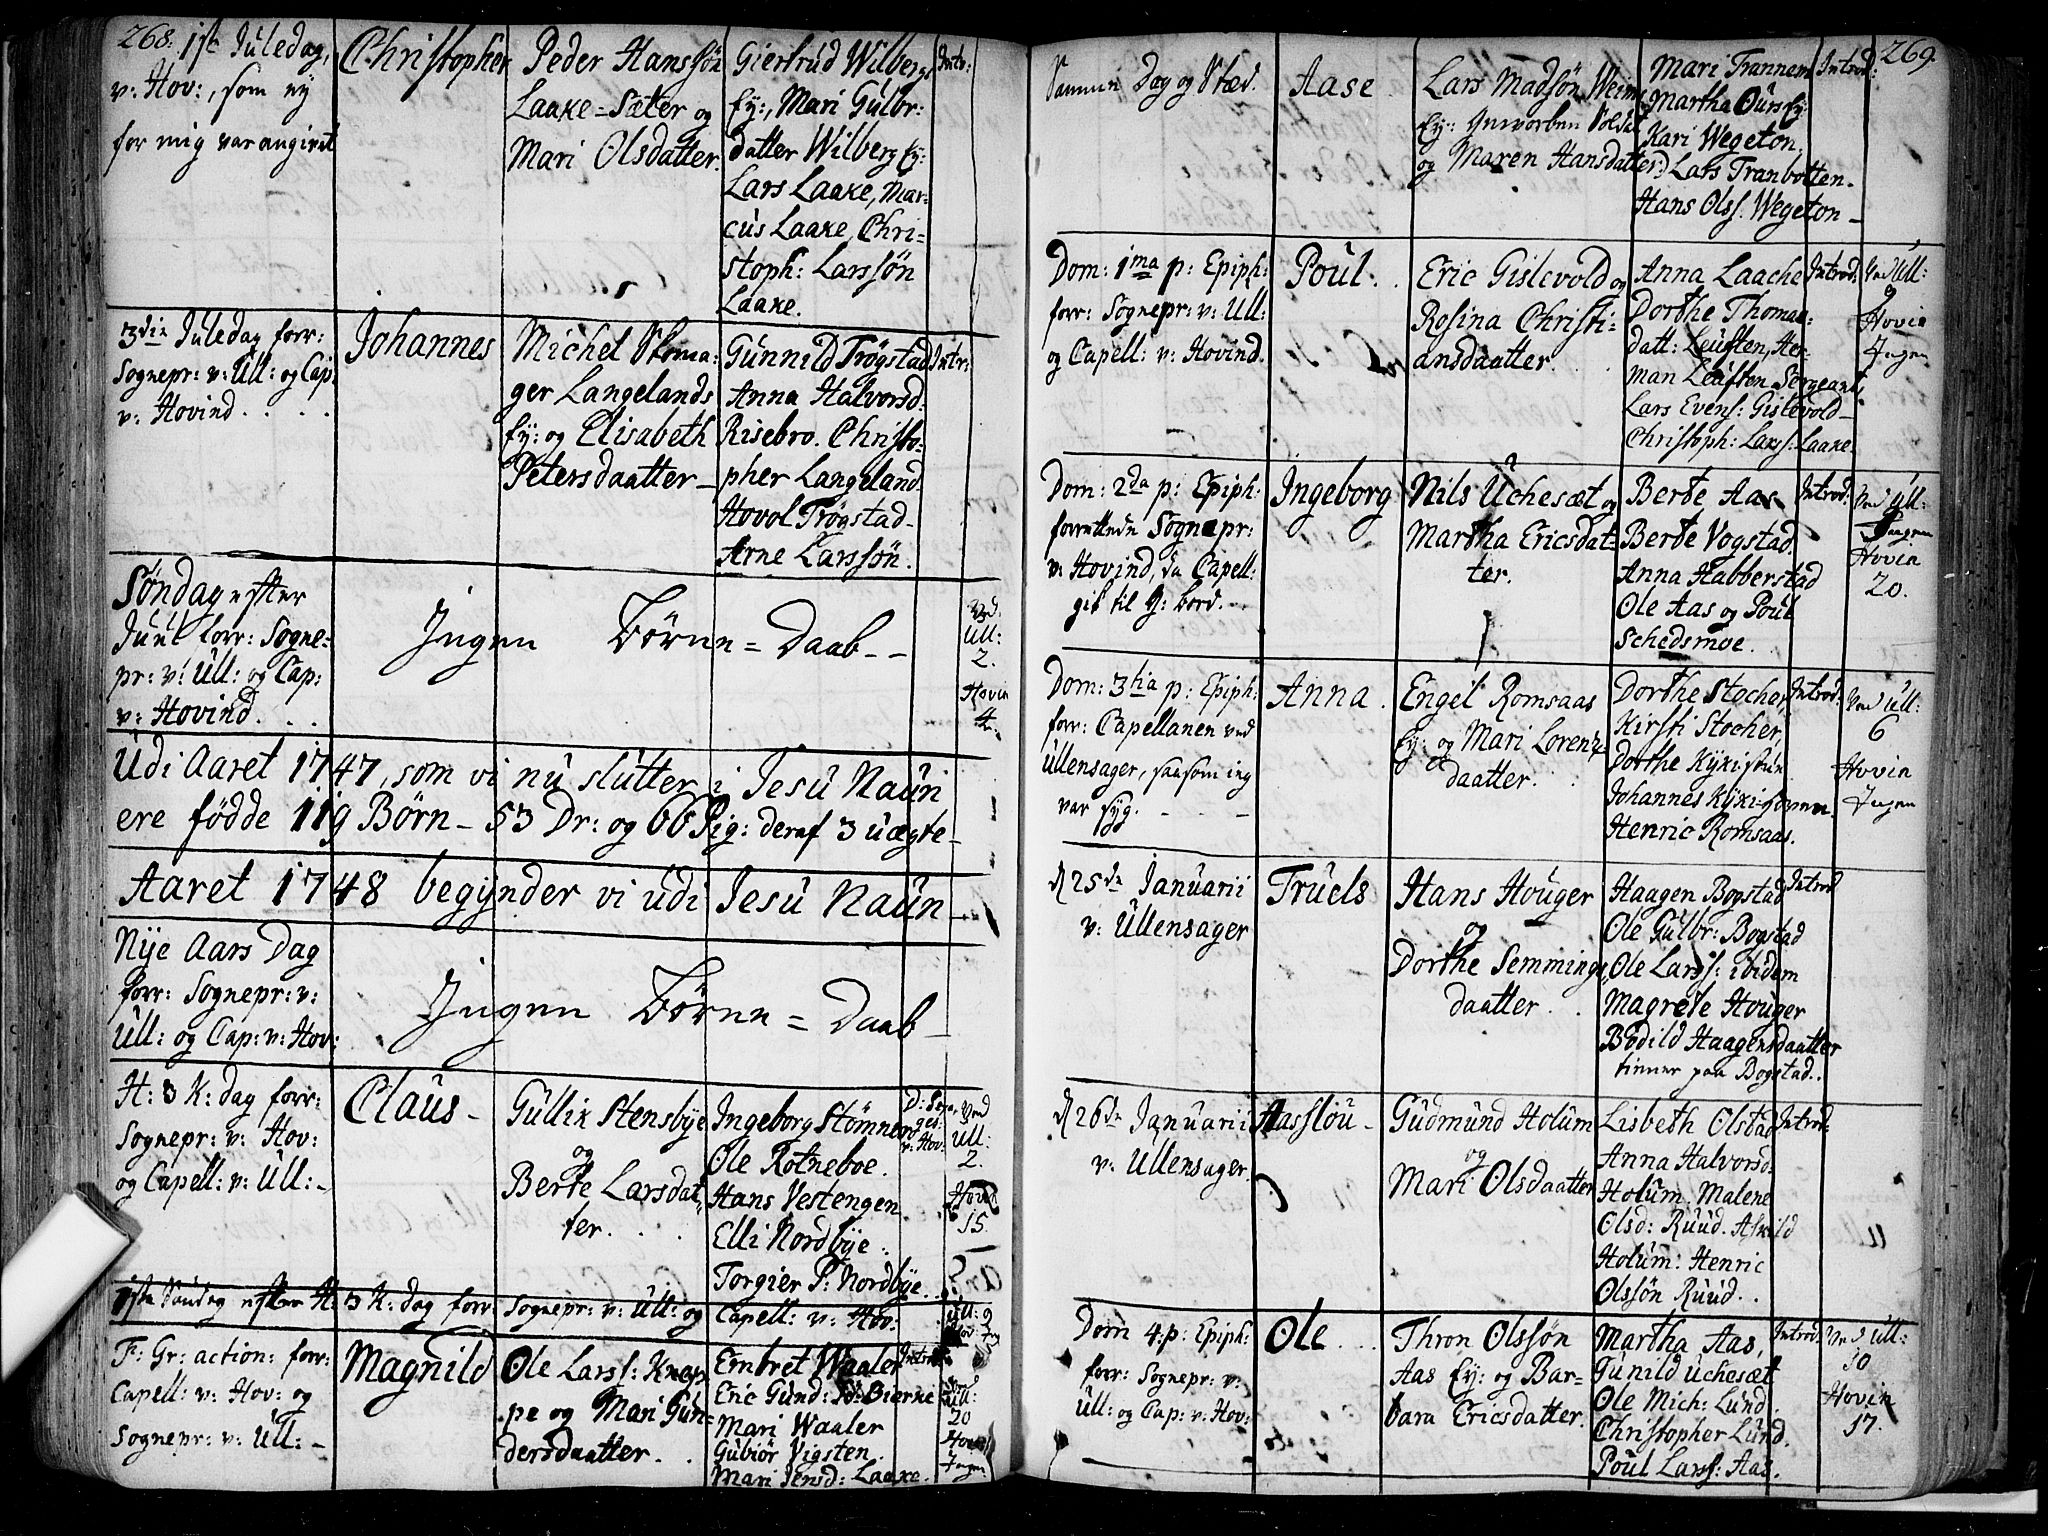 268.
1ste Juledag,
v: Hov:, som ey
for mig var angivet
Christopher
Peder Hanssön
Laake=Sæter og
Mari Olsdatter.
Giertrud Wilbergs
Ey:, Mari Gulbr:
datter Wilberg Ey:
Lars Laake, Mar=
cus Laake, Chri=
stoph: Larssön
Laake.
Intr:
3die Juledag forr:
Sognepr: v: Ull: og Cap:
v: Hovind. . . .
Johannes
Michel Skoma=
ger Langelands
Ey: og Elisabeth
Petersdaatter_
Gunnild Trögstad
Anna Halvorsd:
Risebro. Christo=
pher Langeland.
Hovol Trögstad_
Arne Larssön.
Intr:
Söndag efter
Juul forr: Sogne=
pr: v: Ull: og Cap:
v: Hovind. . .
Ingen Börne=Daab--
Ved.
Ull:
2.
Hovin
4.
Udi Aaret 1747, som vi nu slutter i Jesu Naun
ere födde 119 Börn_ 53 Dr: og 66 Pig: deraf 3 uægte_
Aaret 1748 begynder vi udi Jesu Naun_
Nye Aars Dag
forr: Sognepr: v:
Ull: og Cap: v: Hov:
Ingen Börne=Daab_
H: 3 K: dag forr:
Sognepr: v: Hov:
og Capell: v: Ull:_
Claus_
Gullik Stensbye
og
Berte Larsdat
ter. . . .
Ingeborg Stömner
Ole Rotneboe.
Hans Vestengen
Elli Nordbye.
Torgier P: Nordbye.
v: Hov:
Ved
Ull:
2.
Hovin
15
1ste Söndag efter H: 3 K: dag forr: Sognepr: v: Ull: og Capell: v: Hov:
Ull: 9
F: Gr: action: forr:
Capell: v: Hov: og
Sognepr: v: Ull:_
Magnild
Ole Larss: Knap
pe og Mari Gun=
dersdaatter. .
Embret Waaler
Eric Gund: Sö: Bierke
Mari Waaler
Gubiör Vigsten.
Mari Jensd: Laake.
Introd:
Ull:
20
Hovin
Ingen
269.
Samme Dag og Stæd.
Aase
Lars Madsön
Ey: Soldat
og Maren Hansdatter
Mari Trannem
Martha Ours Ey:
Kari Wegeton.
Lars Tranbotten_
Hans Olss: Wegeton_
Introd:
Dom: 1ma p: Epiph:
forr: Sognepr: v: Ull:
og Capell: v: Hovind.
Poul.
Eric Gislevold og
Rosina Christi=
ansdaatter.
Anna Laache
Dorthe Thomas=
datt: Leusten, Her=
man Leusten Sergeant
Lars Evens: Gislevold_
Christoph: Lars: Laake.
Introd:
Ved Ull:
9
Hovin
Ingen
Dom: 2da p: Epiph:
forrettede Sognepr:
v: Hovind, da Capell:
gik til G: bord._
Ingeborg
Nils Uchesæt og
Martha Ericsdat=
ter.
Berte Aas
Berte Vogstad
Anna Habberstad
Ole Aas og Poul
Schedsmoe.
Introd:
Ved Ull:
Ingen
Hovin
20.
Dom: 3tia p: Epiph:
forr: Capellanen ved
Ullensager, saasom jeg
var syg. _ _ _
Anna.
Engel Romsaas
Ey: og Mari Lorentz
daatter. .
Dorthe Stocher,
Kirsti Stocher
Dorthe Kyxistun
Johannes Kyxi=
Henric Romsaas.
Introd:
Ved Ull:
6
Hovin
Ingen
d 25de Januarii
v: Ullensager
Truels
Hans Houger
og
Dorthe Semmings,
daatter. .
Haagen Bogstad
Ole Gulbr: Bogstad
Ole Larss: ibidem
Magrete Houger
Bodild Haagensdaatter
tienner paa Bogstad..
Introd
d 26de Januarii
v: Ullensager
Aasslou_
Gudmund Holum
og
Mari Olsdaatter
Lisbeth Olstad
Anna Halvorsd:
Holum. Malene
Olsd: Ruud. Askild
Holum: Henric
Olssön Ruud. .
Introd:
Dom 4: p: Epiph:
forr: Sognepr: v:
Ull: og Cap: v: Hov:
Ole . . .
Thron Olssön
Aas Ey: og Bar=
bara Ericsdatter.
Martha Aas,
Gunild Uchesæt
Ole Mich: Lund.
Christopher Lund.
Poul Larss: Aas.
Introd:
Ved Ull:
10
Hovin
17.